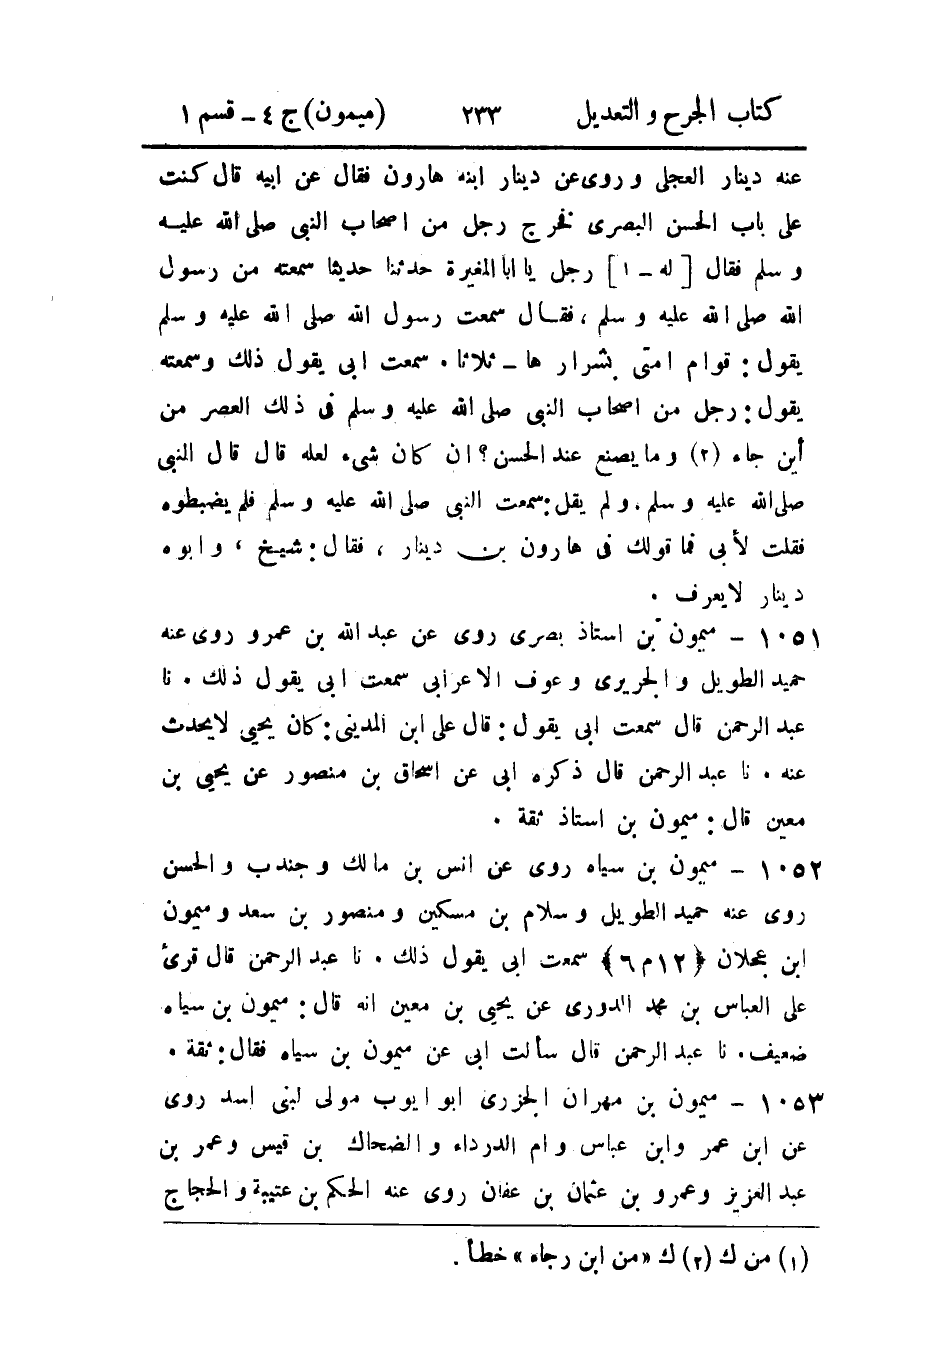 كتاب الجرح و التعديل ٢٣٣ (ميمون) ج ٤ – قسم ١
عنه دينار العجلى و روى عن دينار ابنه هارون فقال عن ابيه قال كنت
على باب الحسن البصرى فخرج رجل من اصحاب النبى صلى الله عليه
و سلم فقال [ له – ١ ] رجل يا ابا المغيرة حدثنا حديثا سمعته من رسول
الله صلى الله عليه و سلم ، فقال سمعت رسول الله صلى الله عليه و سلم
يقول : قوام امتى بشرار ها – ثلاثا . سمعت ابى يقول ذلك وسمعته
يقول : رجل من اصحاب النبى صلى الله عليه و سلم فى ذلك العصر من
أين جاء (٢) و ما يصنع عند الحسن ؟ ان كان شىء لعله قال قال النبى
صلى الله عليه و سلم ، و لم يقل : سمعت النبى صلى الله عليه و سلم فلم يضبطوه
فقلت لأبى فما قولك فى هارون بن دينار ، فقال : شيخ ، و ابوه
دينار لا يعرف .
١٠٥١ – ميمون بن استاذ بصرى روى عن عبد الله بن عمرو روى عنه
حميد الطويل و الجريرى و عوف الاعرابى سمعت ابى يقول ذلك . نا
عبد الرحمن قال سمعت ابى يقول : قال على ابن المدينى : كان يحيى لا يحدث
عنه . نا عبد الرحمن قال ذكره ابى عن اسحاق بن منصور عن يحيى بن
معين قال : ميمون بن استاذ ثقة .
١٠٥٢ – ميمون بن سياه روى عن انس بن مالك و جندب و الحسن
روى عنه حميد الطويل و سلام بن مسكين و منصور بن سعد و ميمون
ابن عجلان ﴿ ١٢ م ٦ ﴾ سمعت ابى يقول ذلك . نا عبد الرحمن قال قرئ
على العباس بن محمد الدورى عن يحيى بن معين انه قال : ميمون بن سياه
ضعيف . نا عبد الرحمن قال سألت ابى عن ميمون بن سياه فقال : ثقة .
١٠٥٣ – ميمون بن مهران الجزرى ابو ايوب مولى لبنى اسد روى
عن ابن عمر وابن عباس و ام الدرداء و الضحاك بن قيس وعمر بن
عبد العزيز وعمرو بن عثمان بن عفان روى عنه الحكم بن عتيبة و الحجاج
(١) من ك (٢) ك «من ابن رجاء» خطأ .